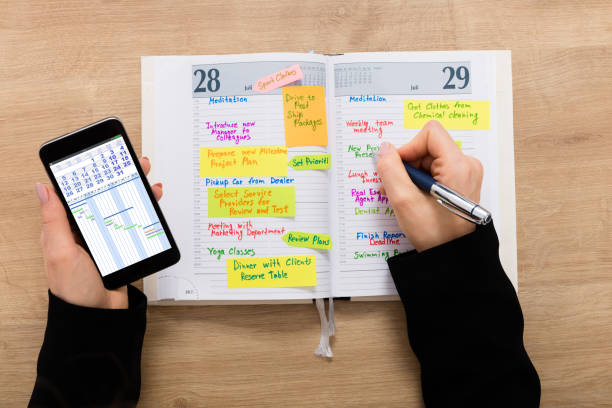 28
Juli
Sport Clothes
Meditation
Drive to
Post
Ship
Packages
Introduce new
Manager to
colleagues
Prepare new Milestone
Project Plan
Set Priorities
Pickup Car from Dealer
Select Service
Providers for
Review and Test
Meeting with
Marketing Department
Review Plans
Yoga Classes
Dinner with Clients
Reserve Table
Juli
29
Meditation
Get Clothes from
Chemical cleaning
Weekly team
meeting
New
Lunch
Real
Agent App
Dentist App
Finish Report
Deadline
Swimming